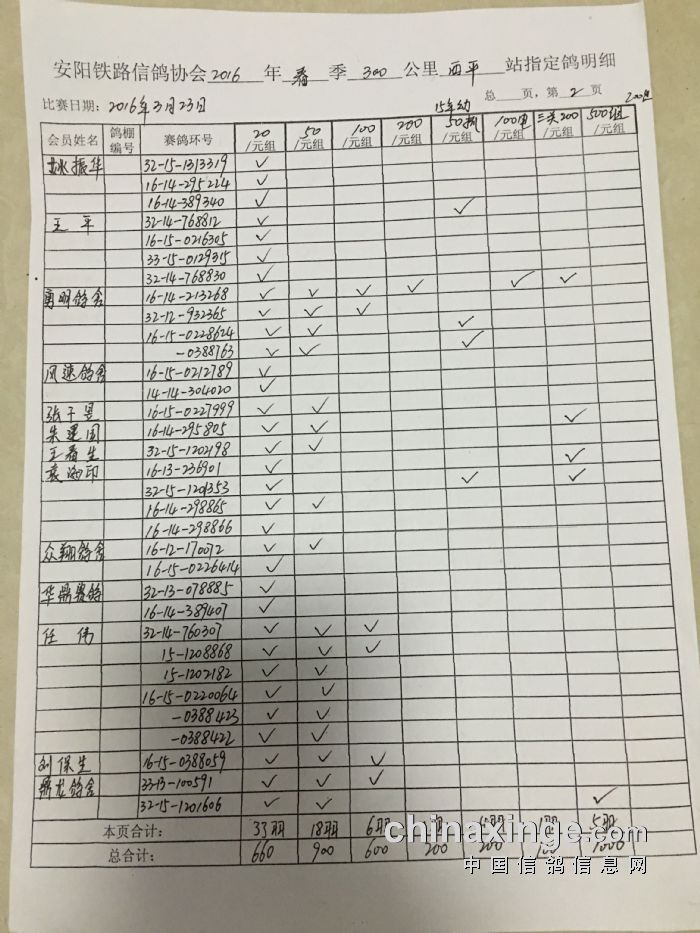 安阳铁路信鸽协会2016年春季300公里西平站指定鸽明细
比赛日期：2016年3月23日 15年幼 总 页，第2页
会员姓名 鸽棚编号 赛鸽环号 20/元组 50/元组 100/元组 200/元组 50/元组 100/元组 三关200/元组 500组/元组
姚振华 32-15-1313319 ✓
16-14-295224 ✓
16-14-389340 ✓ ✓
王平 32-14-768812 ✓
16-15-0216305 ✓
33-15-0129315 ✓
32-14-768830 ✓
勇明鸽舍 16-14-213268 ✓ ✓ ✓ ✓ ✓ ✓
32-12-932365 ✓ ✓ ✓
16-15-0228624 ✓ ✓ ✓
-0388763 ✓ ✓ ✓
风速鸽舍 16-15-0212789 ✓
14-14-304020 ✓
张子昱 16-15-0227999 ✓ ✓
朱建国 16-14-295805 ✓ ✓ ✓
王春生 32-15-1202198 ✓ ✓
袁海印 16-13-236901 ✓ ✓
32-15-1201353 ✓ ✓ ✓
16-14-298865 ✓ ✓
16-14-298866 ✓
众翔鸽舍 16-12-170072 ✓ ✓
16-15-0226414 ✓
华鼎赛鸽 32-13-078885 ✓
16-14-389407 ✓
任伟 32-14-760307 ✓ ✓ ✓
15-1208868 ✓ ✓ ✓
15-1202182 ✓ ✓
16-15-0220064 ✓ ✓
-0388423 ✓ ✓
-0388422 ✓ ✓
刘保生 16-15-0388059 ✓ ✓ ✓
鼎龙鸽舍 33-13-100591 ✓ ✓ ✓
32-15-1201606 ✓ ✓ ✓
本页合计： 33羽 18羽 6羽 5羽
总合计： 660 900 600 200 200 100 1000
chinaxinge.com
中国信鸽信息网